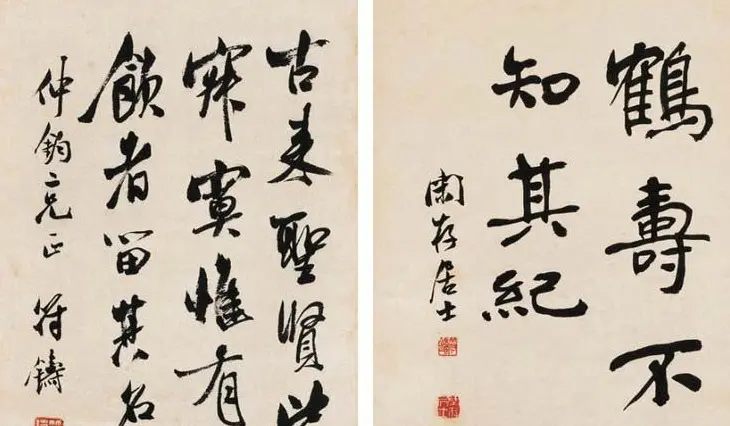 鶴壽不
知其紀
閑存居士
古来聖賢皆
寂寞惟有
飲者留其名
仲鈞二兄正 符鑄